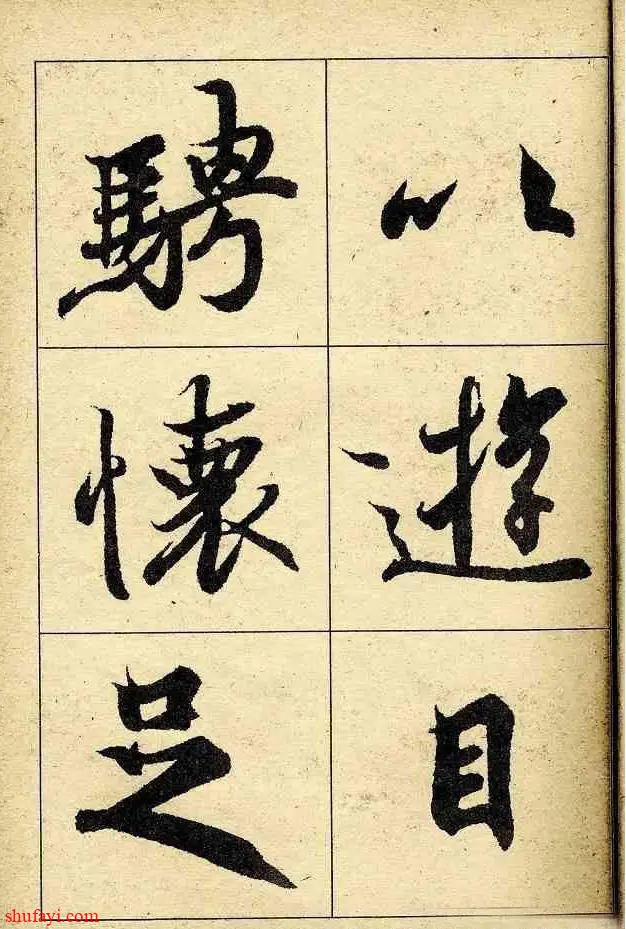 以遊目
騁懷足
shufayi.com